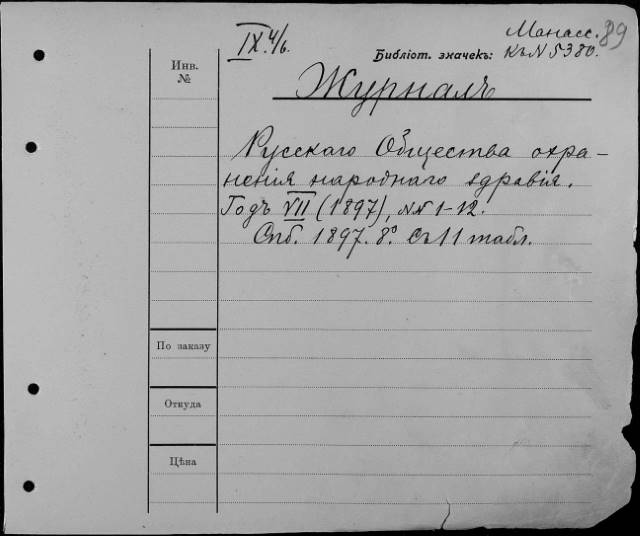 IX.4/6.
Манасс. 89
Библіот. значекъ: Къ N 5380.
Инв.
№
Журналъ
Русскаго Общества охра-
ненія народнаго здравія.
Годъ VII (1897), NN 1-12.
Спб. 1897. 8º. Съ 11 табл.
По заказу
Откуда
Цѣна